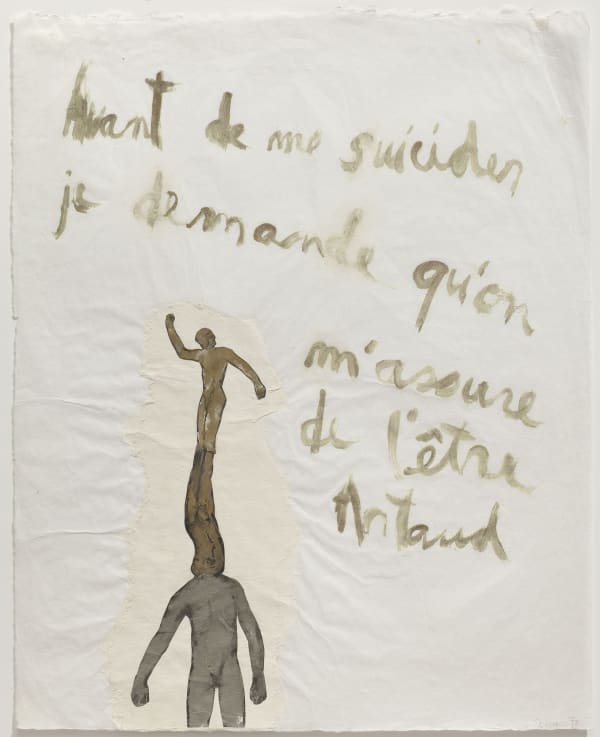 Avant de me suicider
je demande qu'on
m'assure
de l'être
Artaud